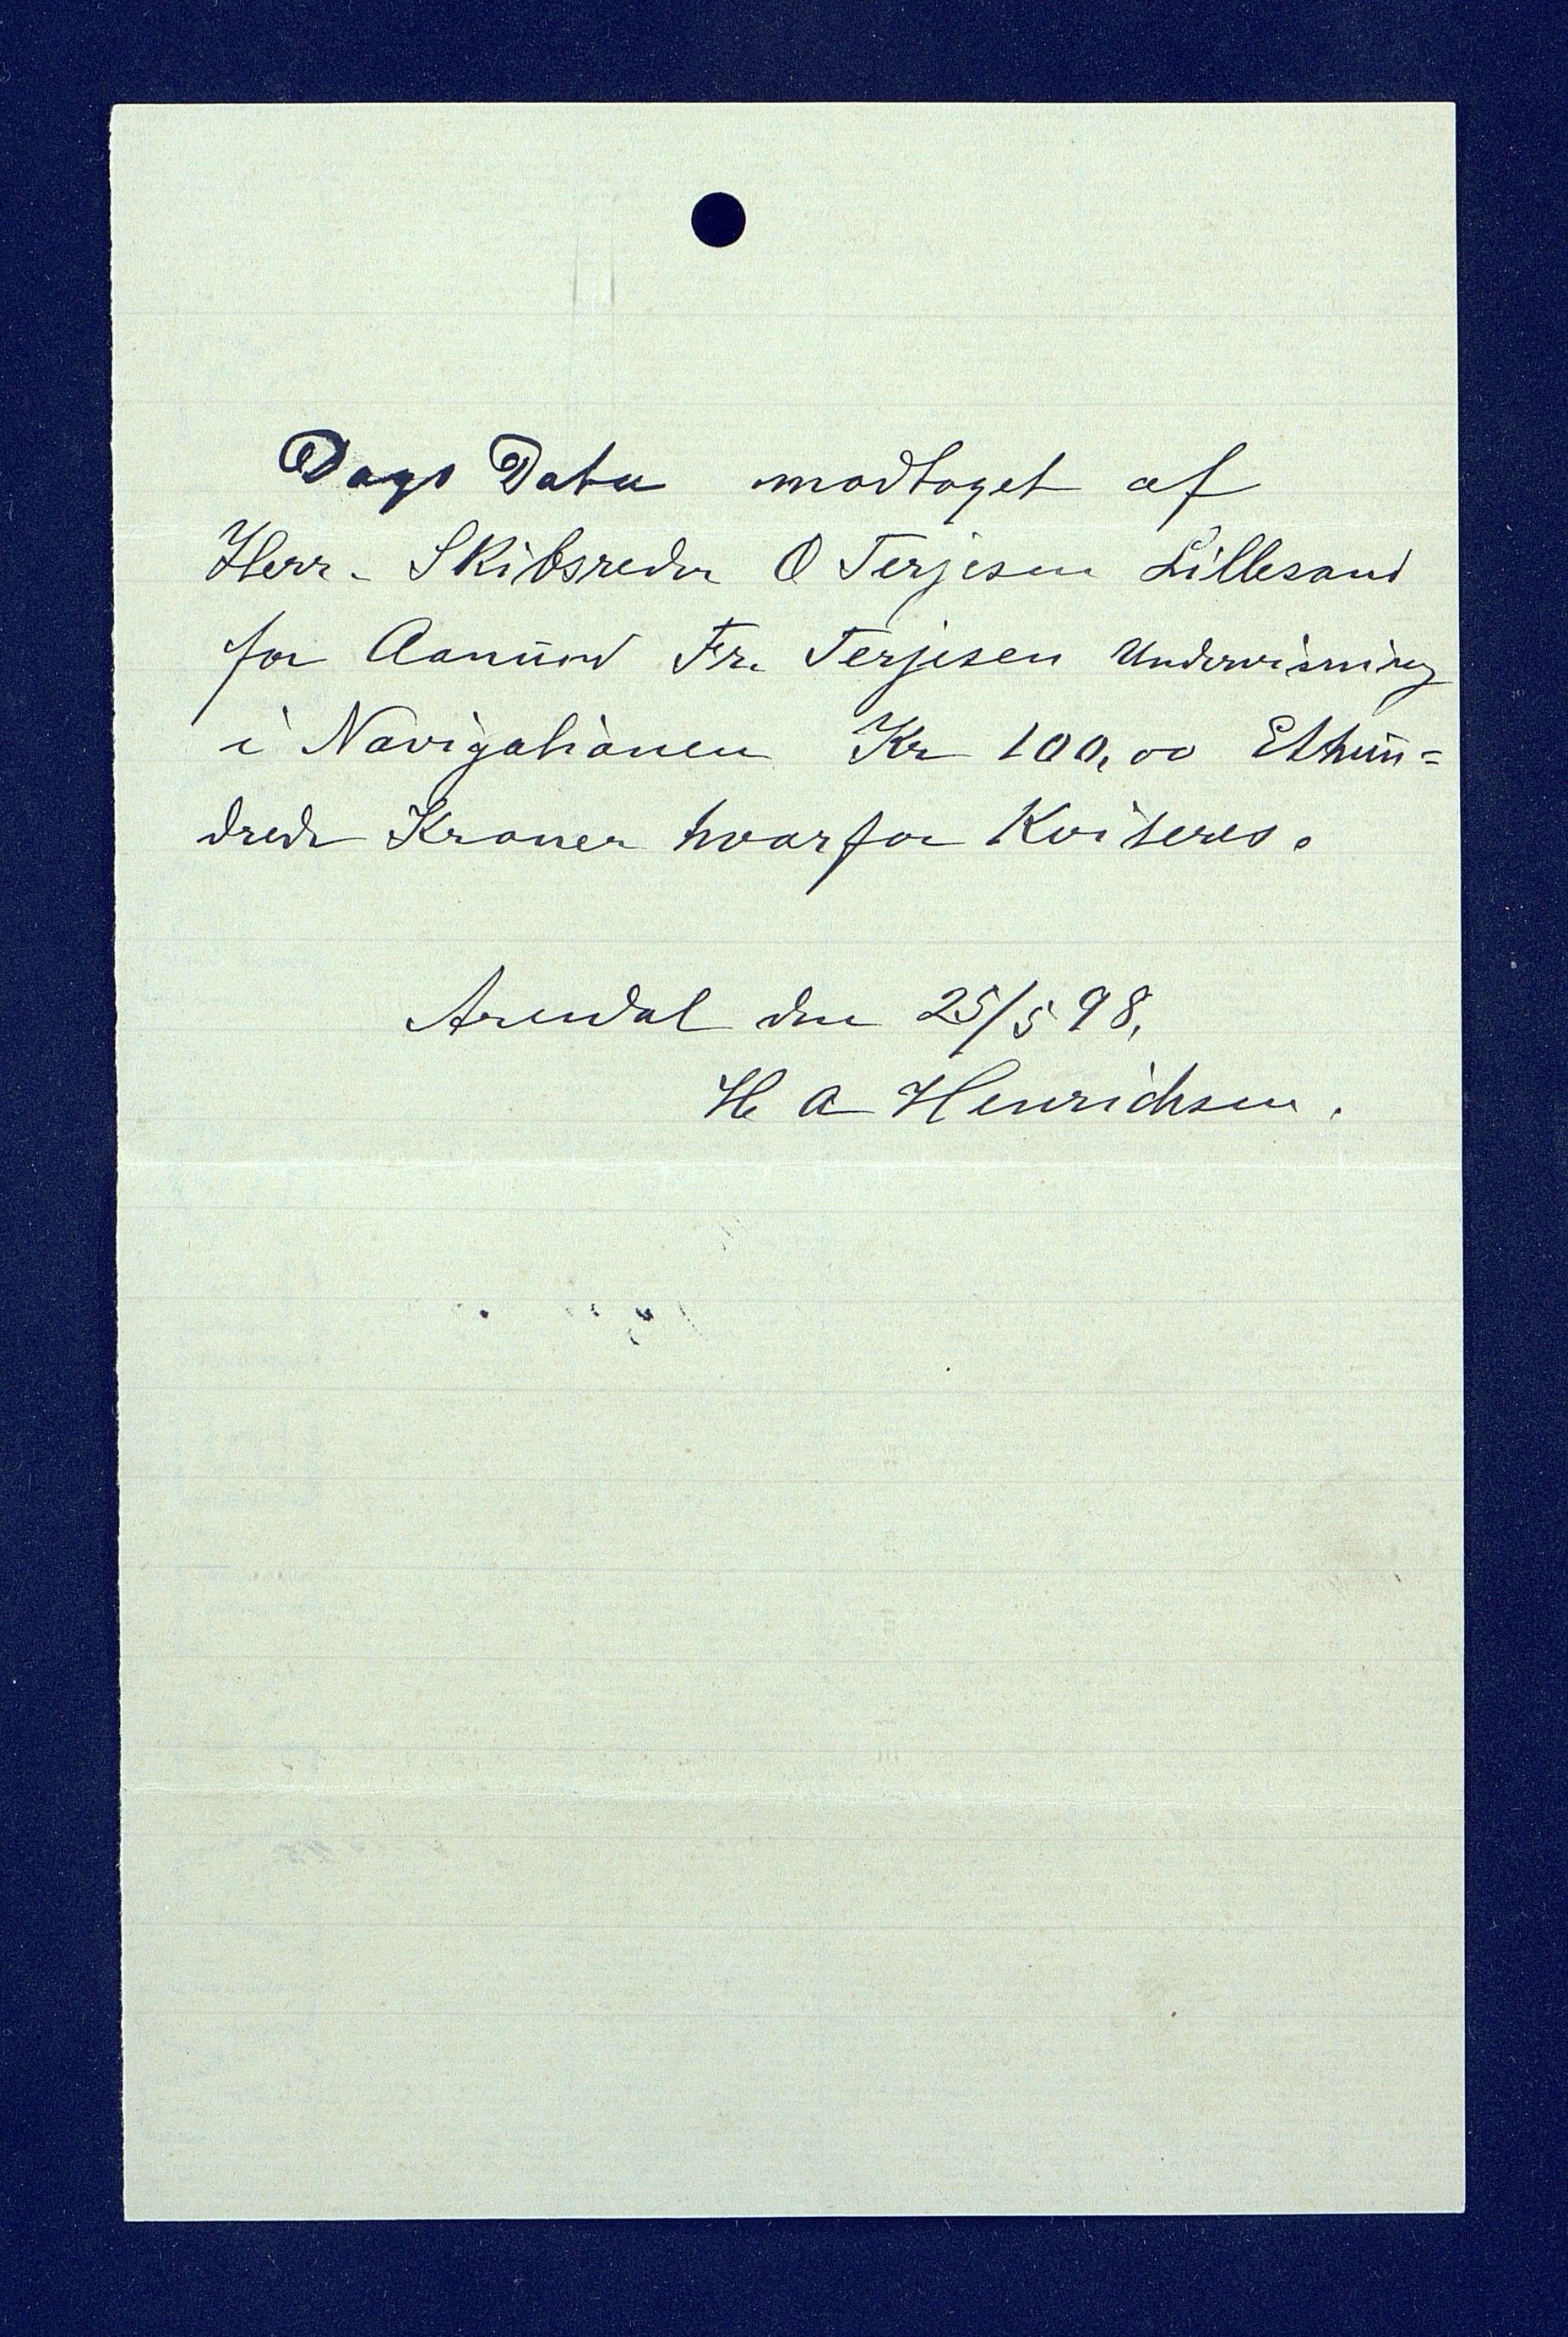 Dags Dato modtaget af
Herr. Skibsreder O Terjesen Lillesand
for Aanund Fr. Terjesen Undervisning
i Navigationen Kr 100,00 Ethun=
drede Kroner hvorfor Kviteres.
Arendal den 25/5 98,
H A Henrichsen.